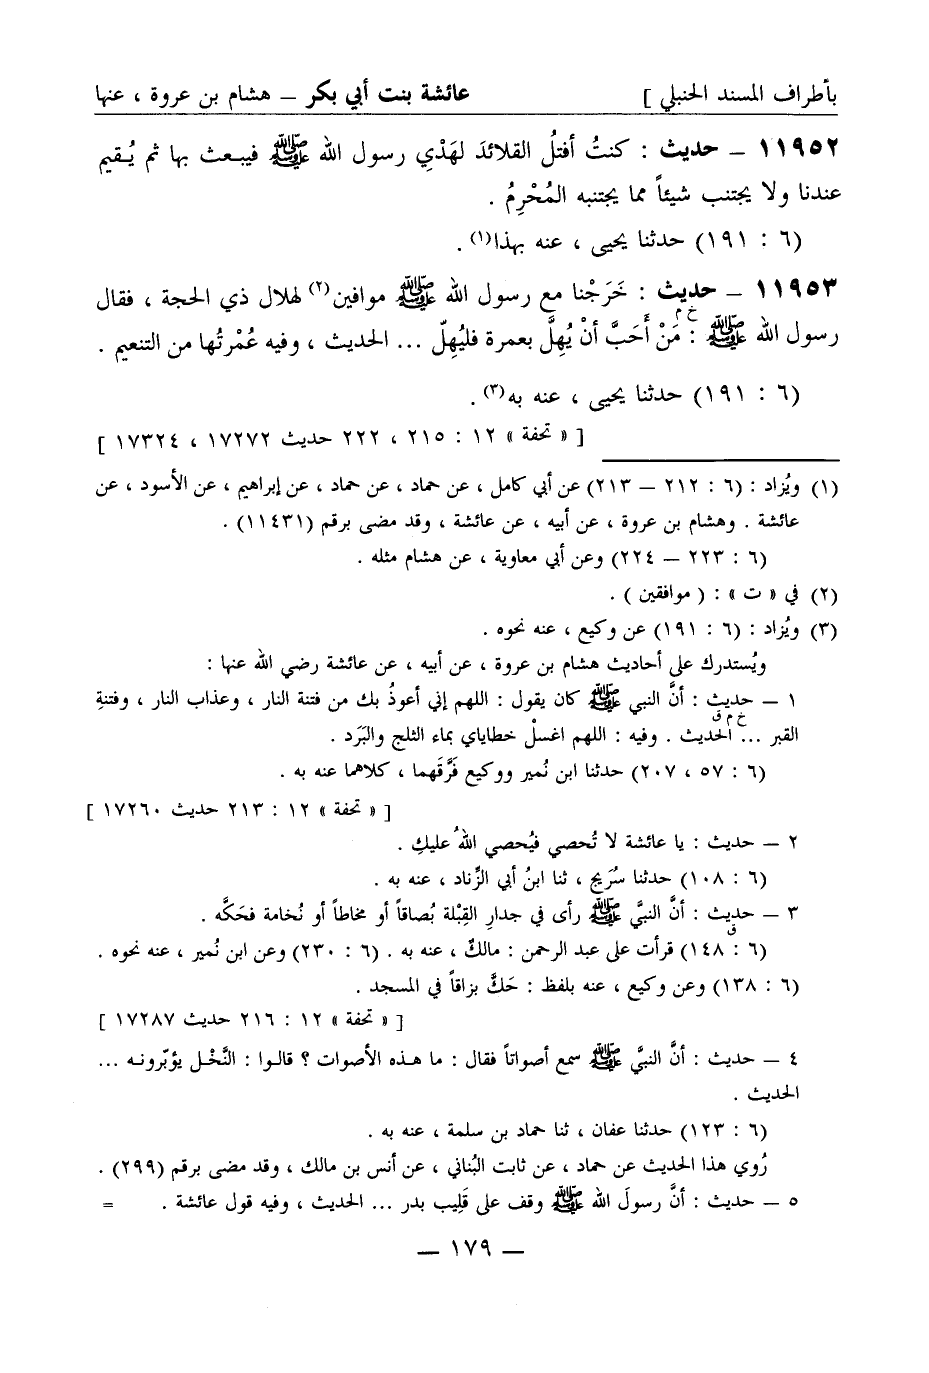 بأطراف المسند الحنبلي ] عائشة بنت أبي بكر – هشام بن عروة ، عنها
١١٩٥٢ – حديث : كنتُ أفتلُ القلائدَ لهَدْيِ رسول الله ﷺ فيبعث بها ثم يُقيم
عندنا ولا يجتنب شيئاً مما يجتنبه المُحْرِمُ .
(٦ : ١٩١) حدثنا يحيى ، عنه بهذا(١) .
١١٩٥٣ – حديث : خَرَجْنا مع رسول الله ﷺ موافين(٢) لهلال ذي الحجة ، فقال
رسول الله ﷺ : خ م مَنْ أَحَبَّ أنْ يُهِلَّ بعمرة فليُهِلّ ... الحديث ، وفيه عُمْرتُها من التنعيم .
(٦ : ١٩١) حدثنا يحيى ، عنه به(٣) .
[ « تحفة » ١٢ : ٢١٥ ، ٢٢٢ حديث ١٧٢٧٢ ، ١٧٣٢٤ ]
(١) ويُزاد : (٦ : ٢١٢ – ٢١٣) عن أبي كامل ، عن حماد ، عن حماد ، عن إبراهيم ، عن الأسود ، عن
عائشة . وهشام بن عروة ، عن أبيه ، عن عائشة ، وقد مضى برقم (١١٤٣١) .
(٦ : ٢٢٣ – ٢٢٤) وعن أبي معاوية ، عن هشام مثله .
(٢) في « ت » : ( موافقين ) .
(٣) ويُزاد : (٦ : ١٩١) عن وكيع ، عنه نحوه .
ويُستدرك على أحاديث هشام بن عروة ، عن أبيه ، عن عائشة رضي الله عنها :
١ – حديث : أنَّ النبي ﷺ كان يقول : اللهم إني أعوذُ بك من فتنة النار ، وعذاب النار ، وفتنةِ
القبر ... خ م ق الحديث . وفيه : اللهم اغسلْ خطاياي بماء الثلج والبَرَد .
(٦ : ٥٧ ، ٢٠٧) حدثنا ابن نُمير ووكيع فَرَّقَهما ، كلاهما عنه به .
[ « تحفة » ١٢ : ٢١٣ حديث ١٧٢٦٠ ]
٢ – حديث : يا عائشة لا تُحصي فيُحصي اللهُ عليكِ .
(٦ : ١٠٨) حدثنا سُرَيج ، ثنا ابنُ أبي الزِّناد ، عنه به .
٣ – حديث : أنَّ النبيَّ ﷺ رأى في جدارِ القِبْلة بُصاقاً أو مخاطاً أو نُخامة فحَكَّه .
ق (٦ : ١٤٨) قرأت على عبد الرحمن : مالكٌ ، عنه به . (٦ : ٢٣٠) وعن ابن نُمير ، عنه نحوه .
(٦ : ١٣٨) وعن وكيع ، عنه بلفظ : حَكَّ بزاقاً في المسجد .
[ « تحفة » ١٢ : ٢١٦ حديث ١٧٢٨٧ ]
٤ – حديث : أنَّ النبيَّ ﷺ سمع أصواتاً فقال : ما هذه الأصوات ؟ قالوا : النَّخْل يؤبّرونه ...
الحديث .
(٦ : ١٢٣) حدثنا عفان ، ثنا حماد بن سلمة ، عنه به .
رُوي هذا الحديث عن حماد ، عن ثابت البُناني ، عن أنس بن مالك ، وقد مضى برقم (٢٩٩) .
٥ – حديث : أنَّ رسولَ الله ﷺ وقف على قَلِيب بدر ... الحديث ، وفيه قول عائشة . =
– ١٧٩ –